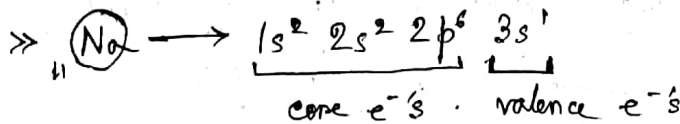 >> ₁₁Na ⟶ 1s² 2s² 2p⁶ 3s¹
core e⁻'s . valence e⁻'s